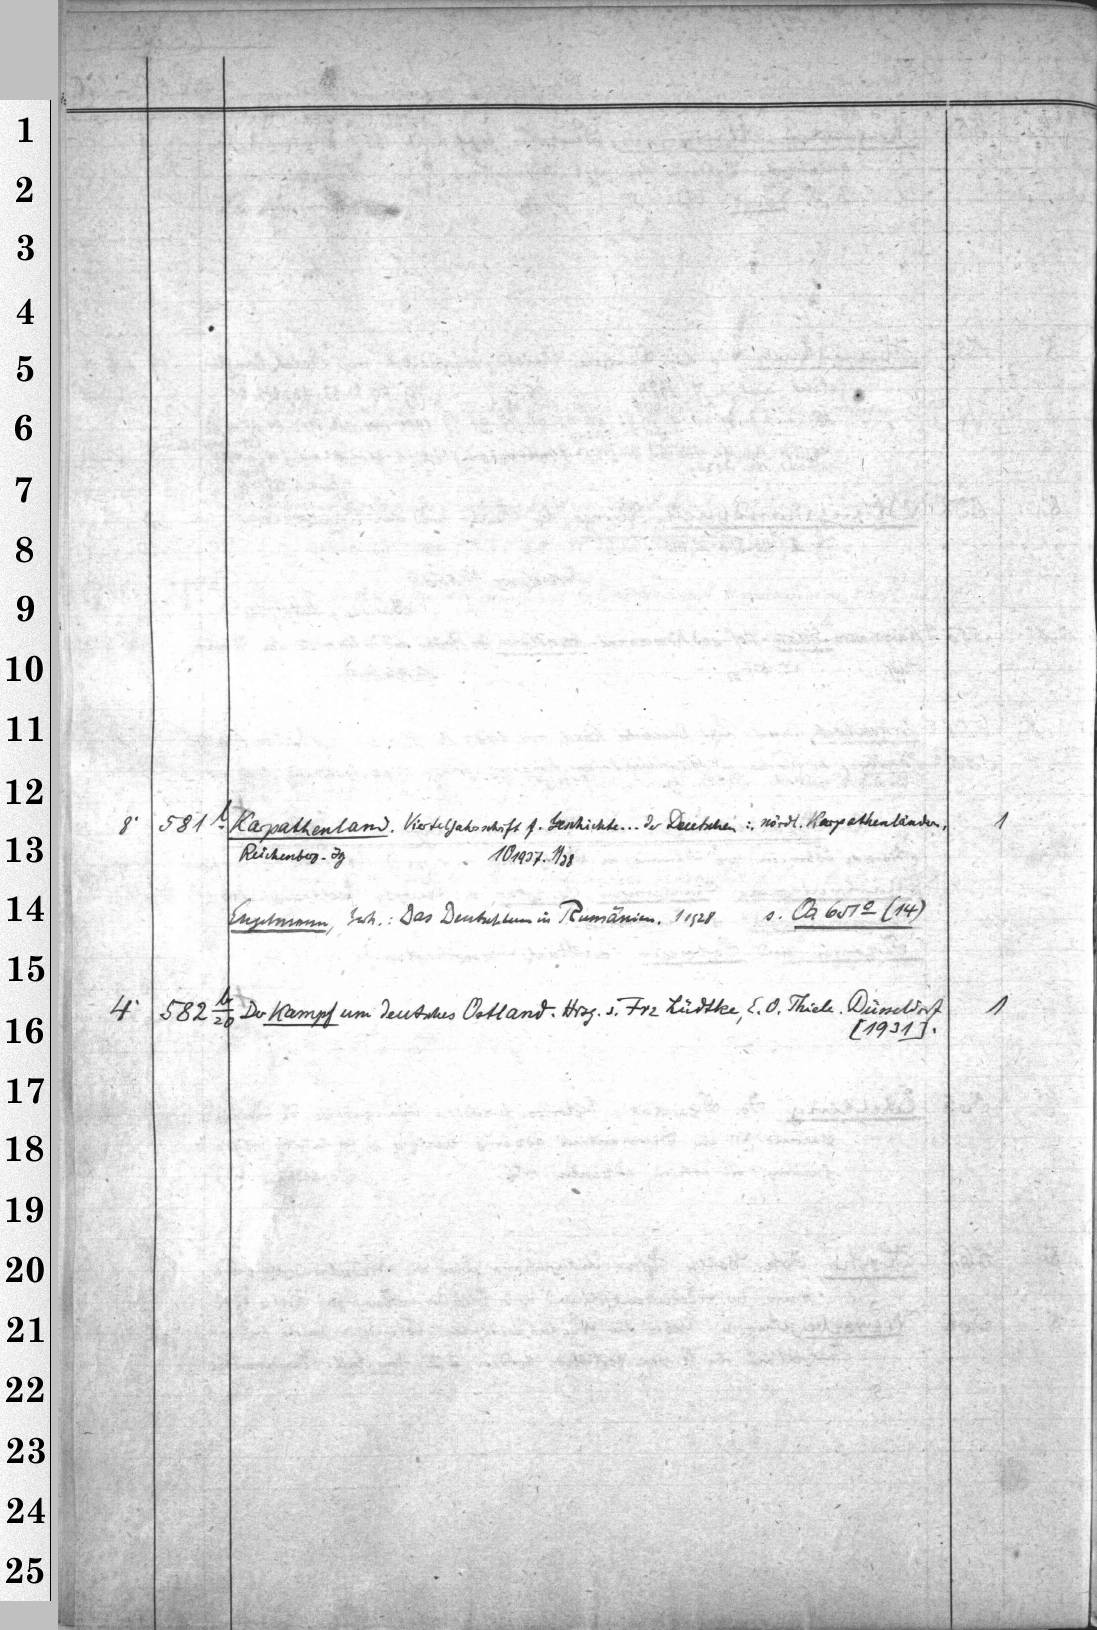 1
2
3
4
5
6
7
8
9
10
11
12
8° 581 b Karpathenland. Vierteljahrsschrift f. Geschichte... der Deutschen i. nördl. Karpathenländern. 1
13
Reichenberg. Jg 10 1937. 11/38
14
Engelmann, Gerh.: Das Deutschtum in Rumänien. 1928 s. Oa 651 a (14)
15
4° 582 b/20 Der Kampf um deutsches Ostland. Hrsg. v. Frz Lüdtke, E. O. Thiele. Düsseldorf 1
16
[1931].
17
18
19
20
21
22
23
24
25